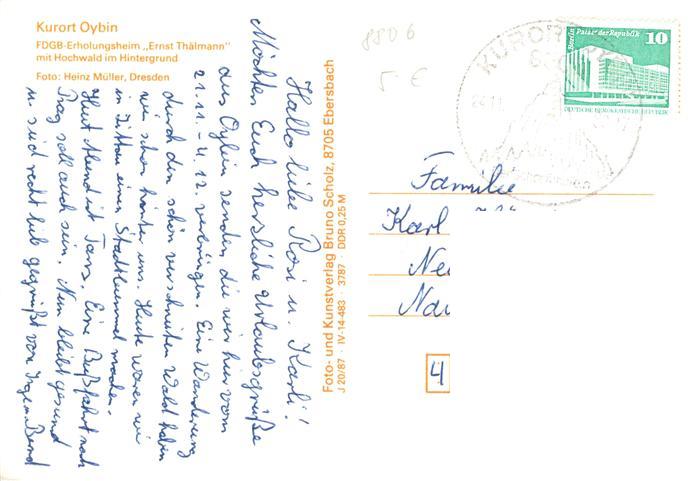 Kurort Oybin
FDGB-Erholungsheim „Ernst Thälmann"
mit Hochwald im Hintergrund
Foto: Heinz Müller, Dresden
Hallo liebe Rosi u. Karli!
Möchten Euch herzliche Urlaubsgrüße
aus Oybin senden, die wir hier vom
21.11. - 4.12. verbringen. Eine Wanderung
durch den schön verschneiten Wald haben
wir schon hinter uns. Heute waren wir
in Zittau einen Stadtbummel machen.
Heut Abend ist Tanz. Eine Busfahrt nach
Prag soll auch sein. Nun bleibt gesund
u. seid recht lieb gegrüßt von Inge u. Bernd
Foto- und Kunstverlag Bruno Scholz, 8705 Ebersbach
J 20/87 · IV-14-483 · 3787 · DDR 0,25 M
8806
5 €
KURORT
24.11.
Berlin, Palast der Republik
10
DEUTSCHE DEMOKRATISCHE REPUBLIK
Familie
Karl
4